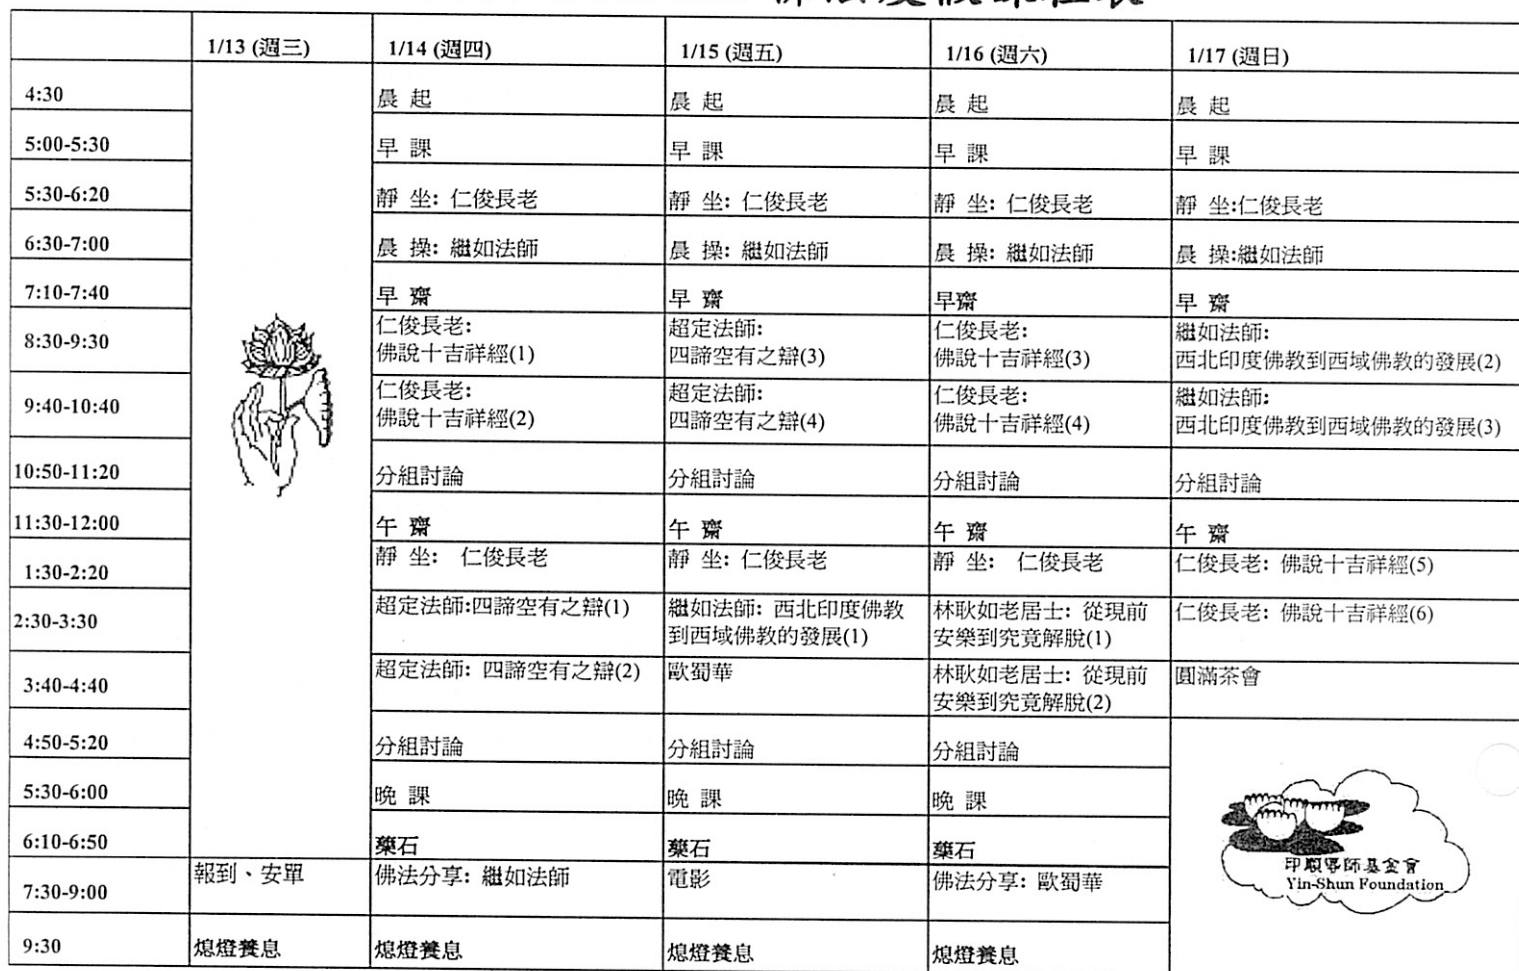 1/13 (週三) 1/14 (週四) 1/15 (週五) 1/16 (週六) 1/17 (週日)
4:30 晨 起 晨 起 晨 起 晨 起
5:00-5:30 早 課 早 課 早 課 早 課
5:30-6:20 靜 坐: 仁俊長老 靜 坐: 仁俊長老 靜 坐: 仁俊長老 靜 坐:仁俊長老
6:30-7:00 晨 操: 繼如法師 晨 操: 繼如法師 晨 操: 繼如法師 晨 操:繼如法師
7:10-7:40 早 齋 早 齋 早齋 早 齋
8:30-9:30 仁俊長老: 超定法師: 仁俊長老: 繼如法師:
佛說十吉祥經(1) 四諦空有之辯(3) 佛說十吉祥經(3) 西北印度佛教到西域佛教的發展(2)
9:40-10:40 仁俊長老: 超定法師: 仁俊長老: 繼如法師:
佛說十吉祥經(2) 四諦空有之辯(4) 佛說十吉祥經(4) 西北印度佛教到西域佛教的發展(3)
10:50-11:20 分組討論 分組討論 分組討論 分組討論
11:30-12:00 午 齋 午 齋 午 齋 午 齋
1:30-2:20 靜 坐: 仁俊長老 靜 坐: 仁俊長老 靜 坐: 仁俊長老 仁俊長老: 佛說十吉祥經(5)
2:30-3:30 超定法師:四諦空有之辯(1) 繼如法師: 西北印度佛教 林耿如老居士: 從現前 仁俊長老: 佛說十吉祥經(6)
到西域佛教的發展(1) 安樂到究竟解脫(1)
3:40-4:40 超定法師: 四諦空有之辯(2) 歐蜀華 林耿如老居士: 從現前 圓滿茶會
安樂到究竟解脫(2)
4:50-5:20 分組討論 分組討論 分組討論
5:30-6:00 晚 課 晚 課 晚 課
6:10-6:50 藥石 藥石 藥石
7:30-9:00 報到、安單 佛法分享: 繼如法師 電影 佛法分享: 歐蜀華
9:30 熄燈養息 熄燈養息 熄燈養息 熄燈養息
印順導師基金會
Yin-Shun Foundation